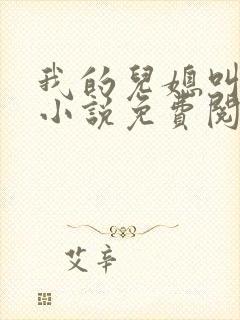 我的兒媳叫
小說免費閱
艾辛